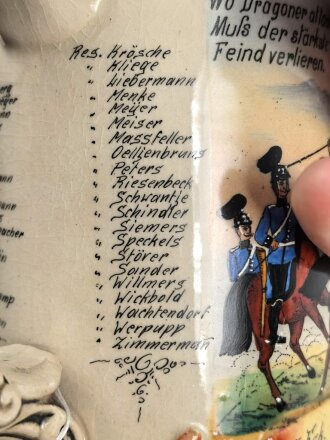 Wo Dragoner
Muß der
Feind verlieren.
Res. Krösche
" Kliege
" Liebermann
" Menke
" Meyer
" Meiser
" Massfeller
" Oellienbruns
" Peters
" Riesenbeck
" Schwantje
" Schindler
" Siemers
" Speckels
" Stöver
" Sander
" Willmers
" Wickbold
" Wachtendorf
" Werpupp
" Zimmermann